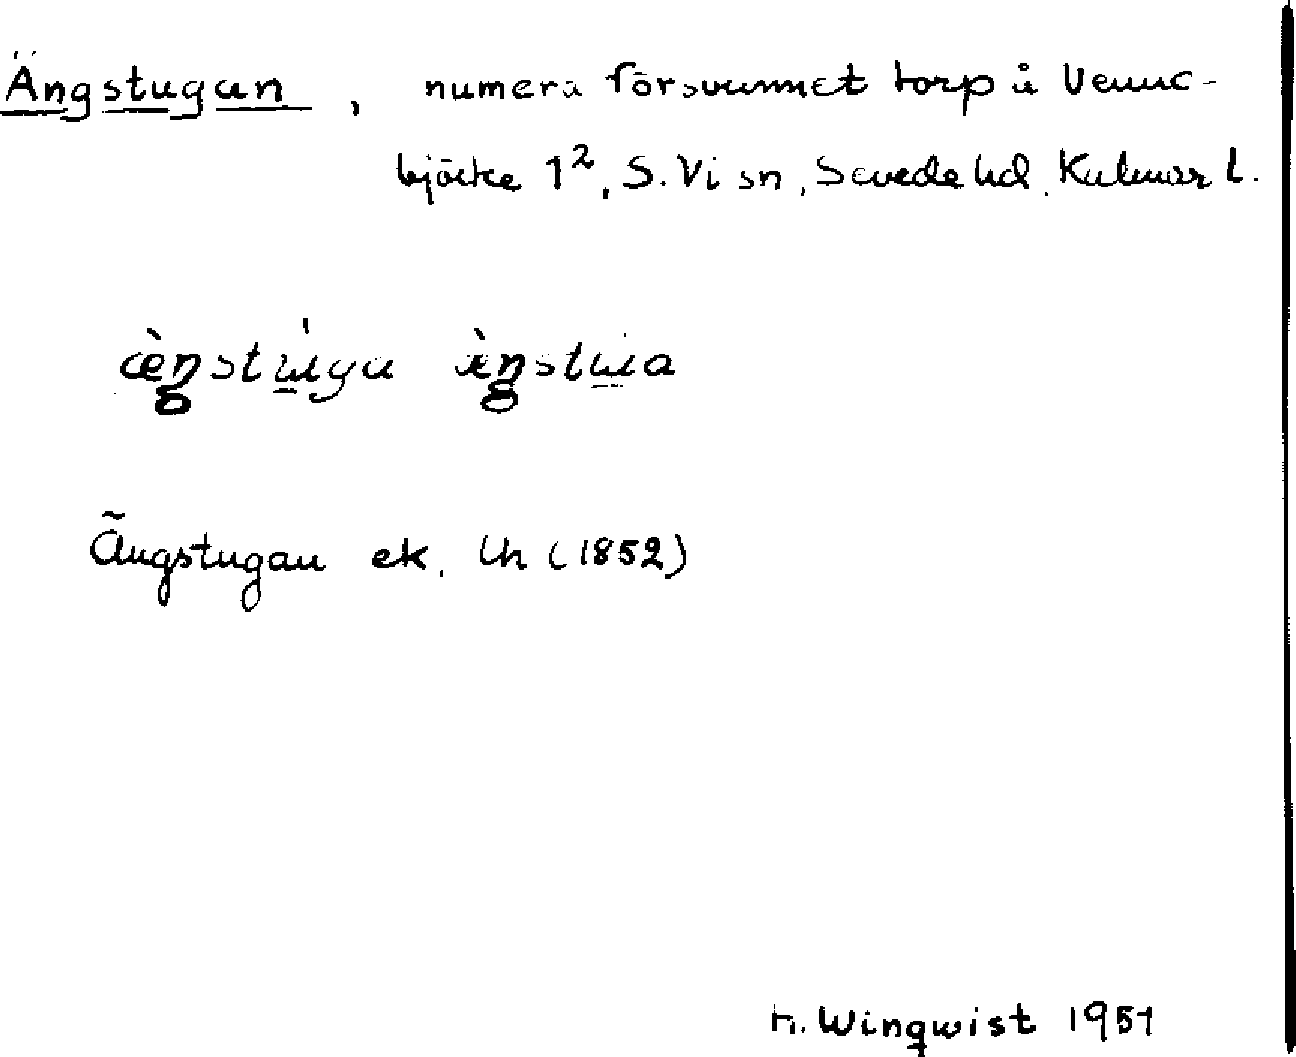 Ängstugan, numera försvunnet torp å Venne-
björke 1², S. Vi sn, Sevede hd. Kalmar l.
Ängstugan ek. Lh (1852)
H. Winqwist 1951